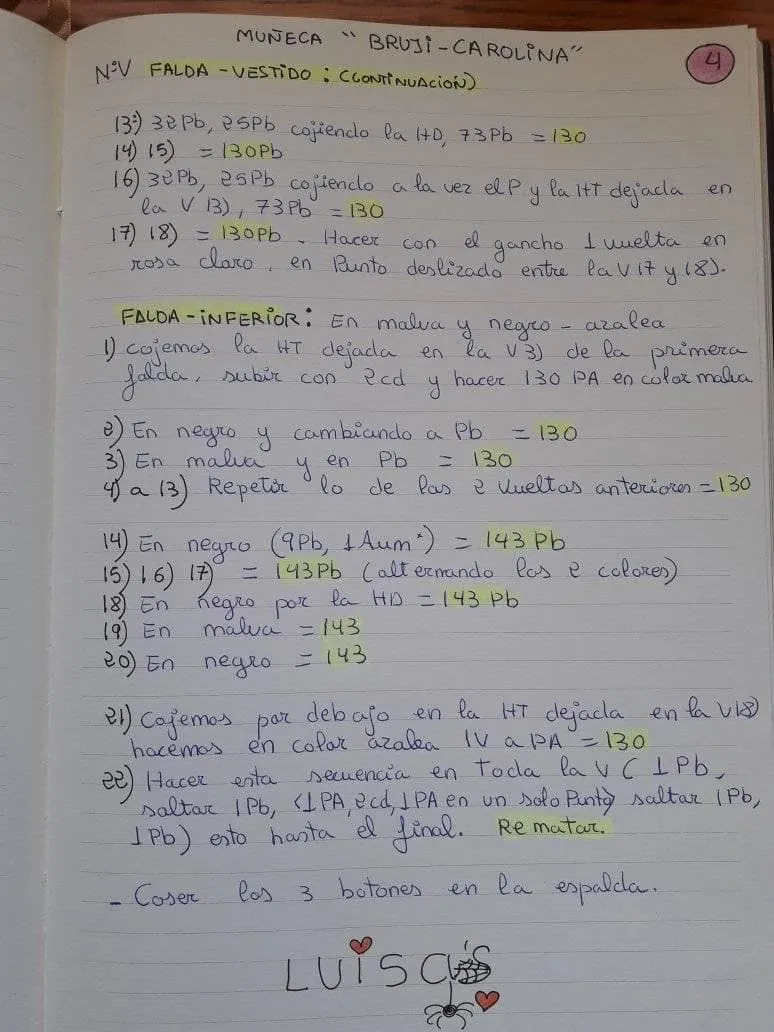 MUÑECA "BRUJI-CAROLINA"
4
NºV FALDA-VESTIDO: (CONTINUACIÓN)
13) 32Pb, 25Pb cojiendo la HD, 73Pb = 130
14) 15) = 130Pb
16) 32Pb, 25Pb cojiendo a la vez el P y la HT dejada en
la V 13), 73Pb = 130
17) 18) = 130Pb. Hacer con el gancho 1 vuelta en
rosa claro, en Punto deslizado entre la V17 y 18).
FALDA-INFERIOR: En malva y negro - azalea
1) cojemos la HT dejada en la V3) de la primera
falda, subir con 2cd y hacer 130 PA en color malva
2) En negro y cambiando a Pb = 130
3) En malva y en Pb = 130
4) a 13) Repetir lo de las 2 vueltas anteriores = 130
14) En negro (9Pb, 1Aum*) = 143 Pb
15) 16) 17) = 143Pb (alternando los 2 colores)
18) En negro por la HD = 143 Pb
19) En malva = 143
20) En negro = 143
21) Cojemos por debajo en la HT dejada en la V18)
hacemos en color azalea 1V a PA = 130
22) Hacer esta secuencia en Toda la V (1Pb,
saltar 1Pb, <1PA, 2cd, 1PA en un solo Punto> saltar 1Pb,
1Pb) esto hasta el final. Rematar.
- Coser los 3 botones en la espalda.
LUISA'S